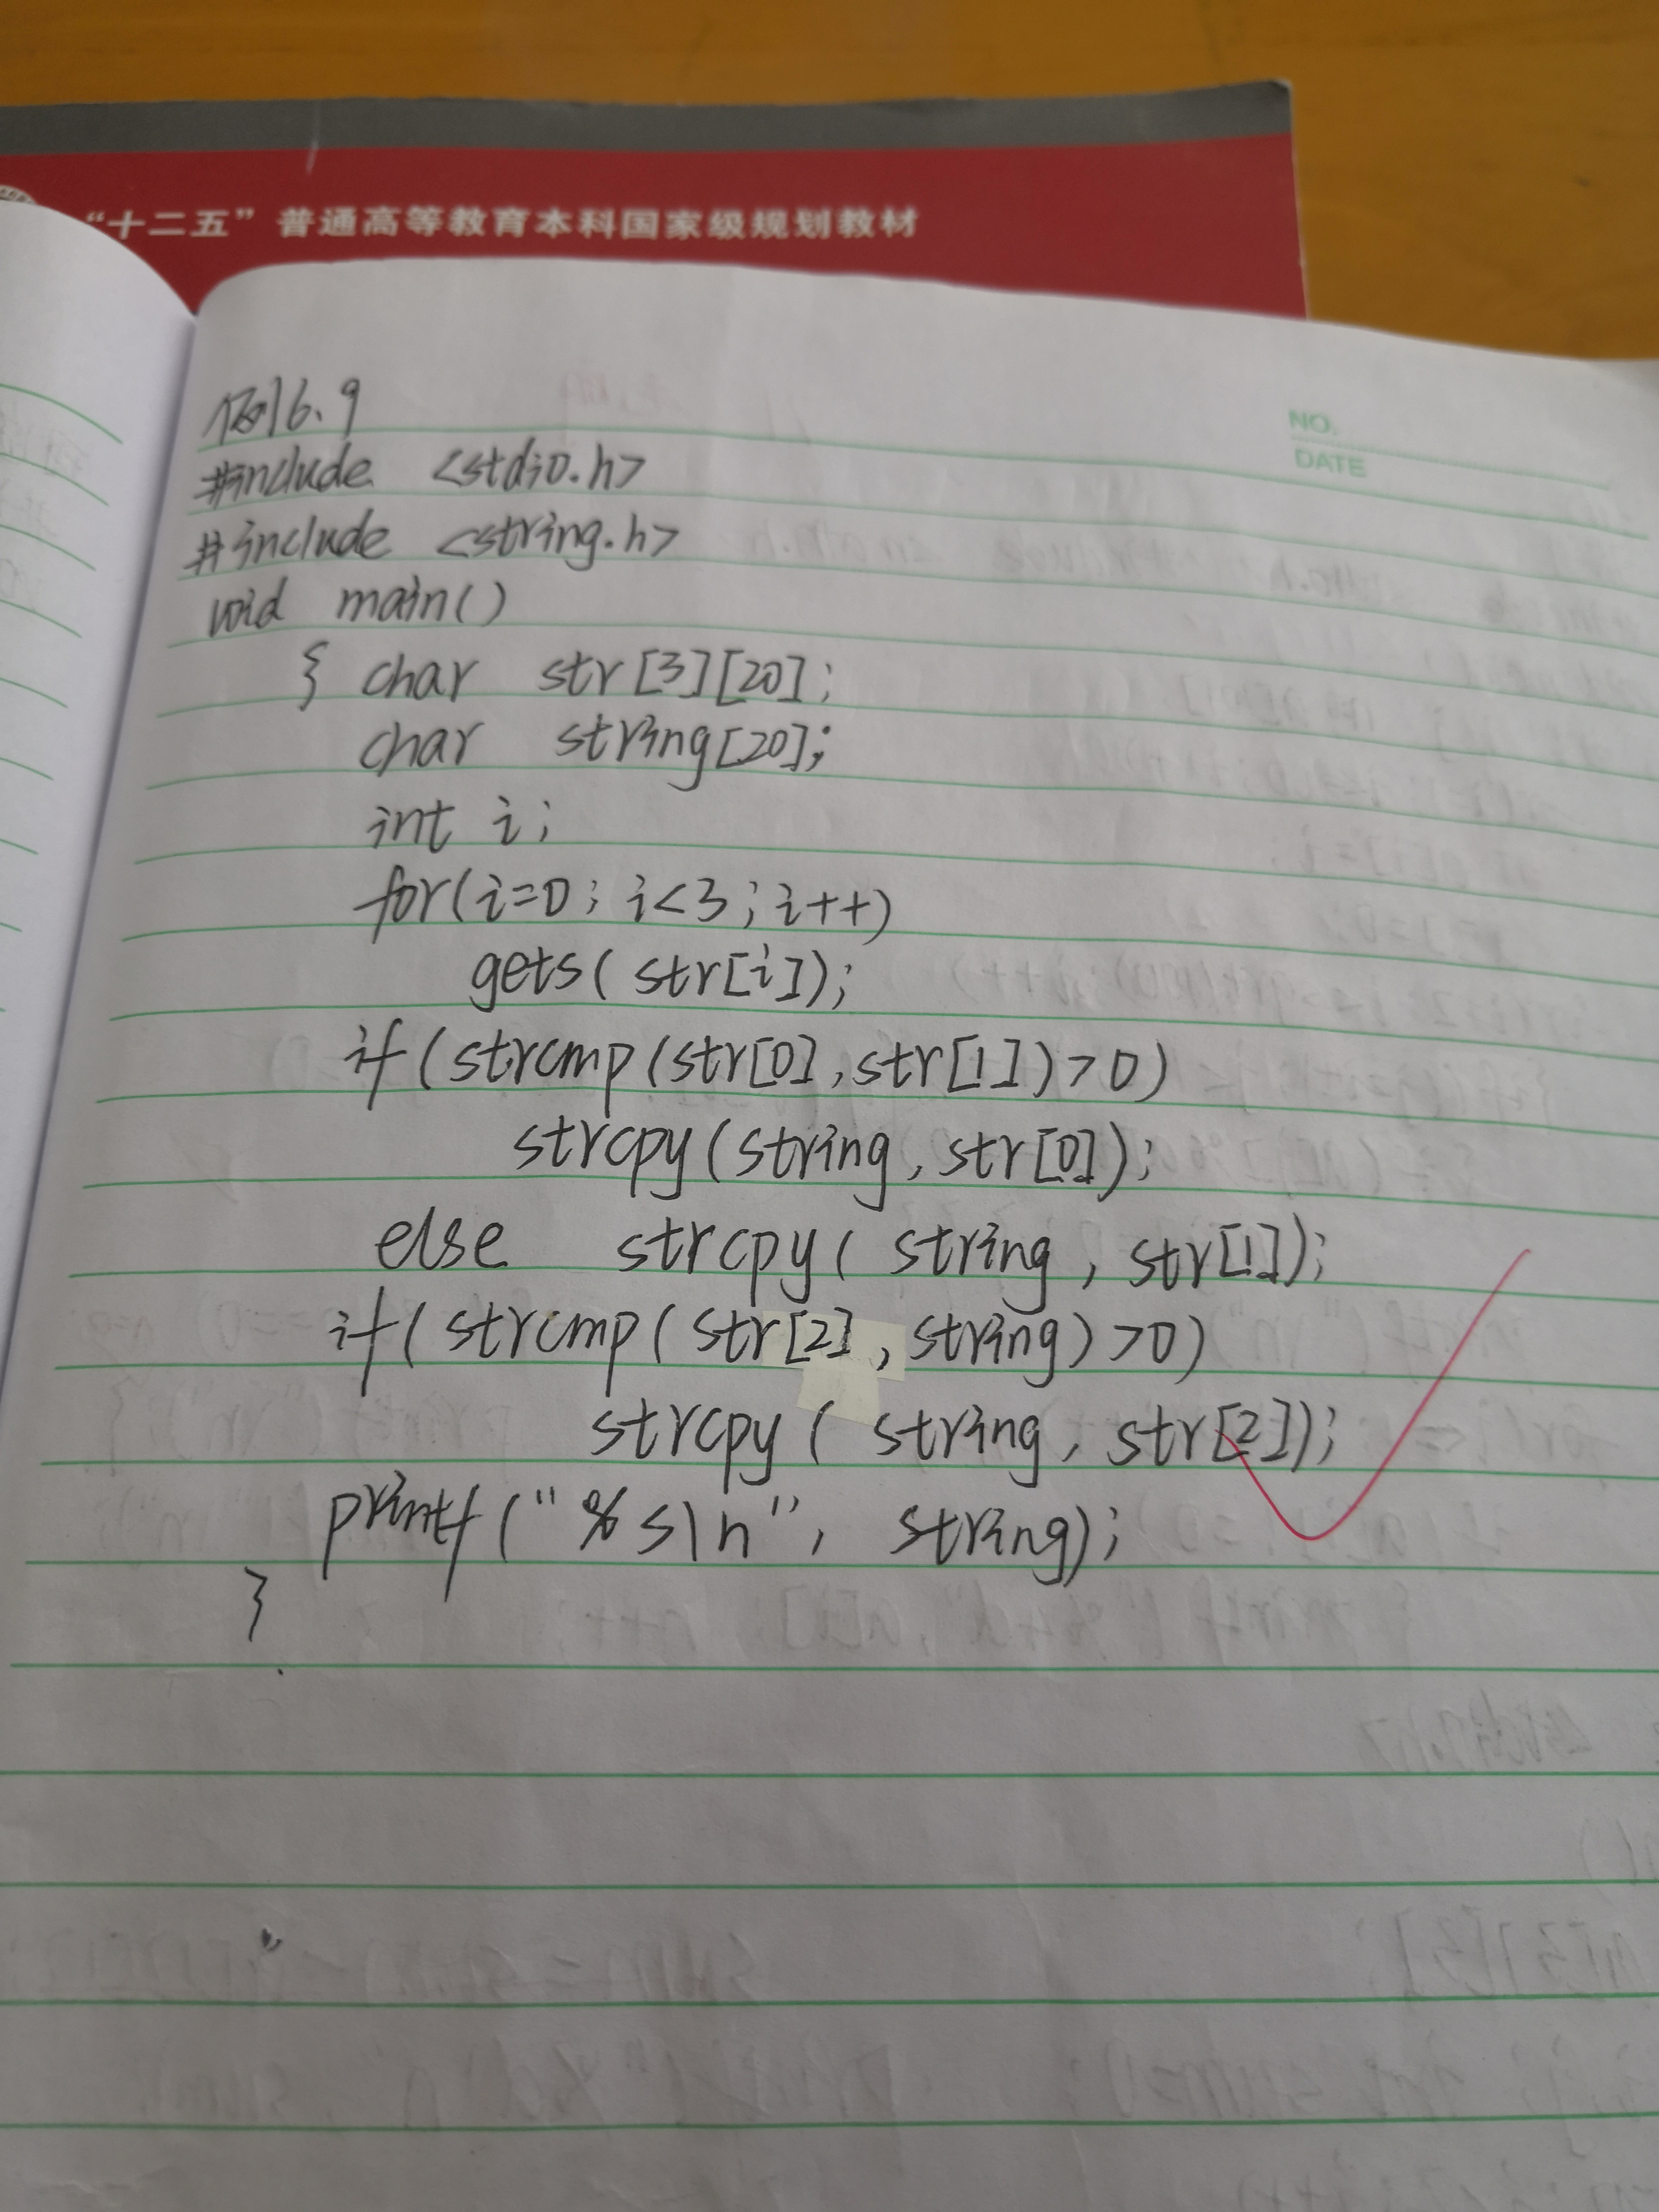 “十二五”普通高等教育本科国家级规划教材
NO.
DATE
例6.9
#include <stdio.h>
#include <string.h>
void main()
{ char str[3][20];
char string[20];
int i;
for(i=0; i<3; i++)
gets(str[i]);
if(strcmp(str[0],str[1])>0)
strcpy(string,str[0]);
else strcpy(string, str[1]);
if(strcmp(str[2],string)>0)
strcpy(string, str[2]);
printf("%s\n", string);
}